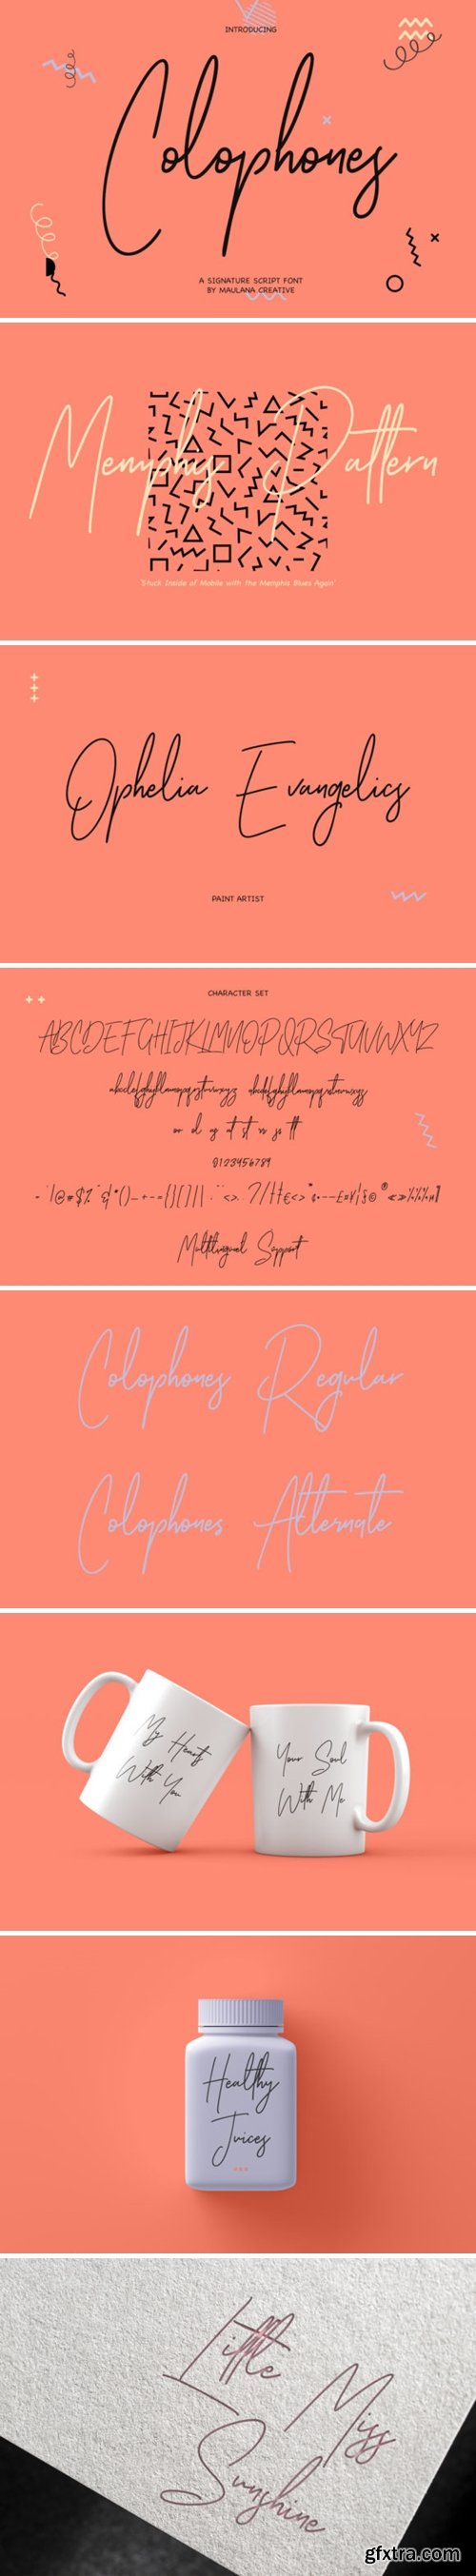 INTRODUCING
Colophones
A SIGNATURE SCRIPT FONT
BY MAULANA CREATIVE
Memphy Pattern
'Stuck Inside of Mobile with the Memphis Blues Again'
Ophelia Evangelics
PAINT ARTIST
CHARACTER SET
ABCDEFGHIJKLMNOPQRSTUVWXYZ
abcdefghijklmnopqrstuvwxyz abcdefghijklmnopqrstuvwxyz
0123456789
Multilingual Support
Colophones Regular
Colophones Alternate
My Heart
With You
Your Soul
With Me
Healthy
Juices
Little
Miss
Sunshine
gfxtra.com